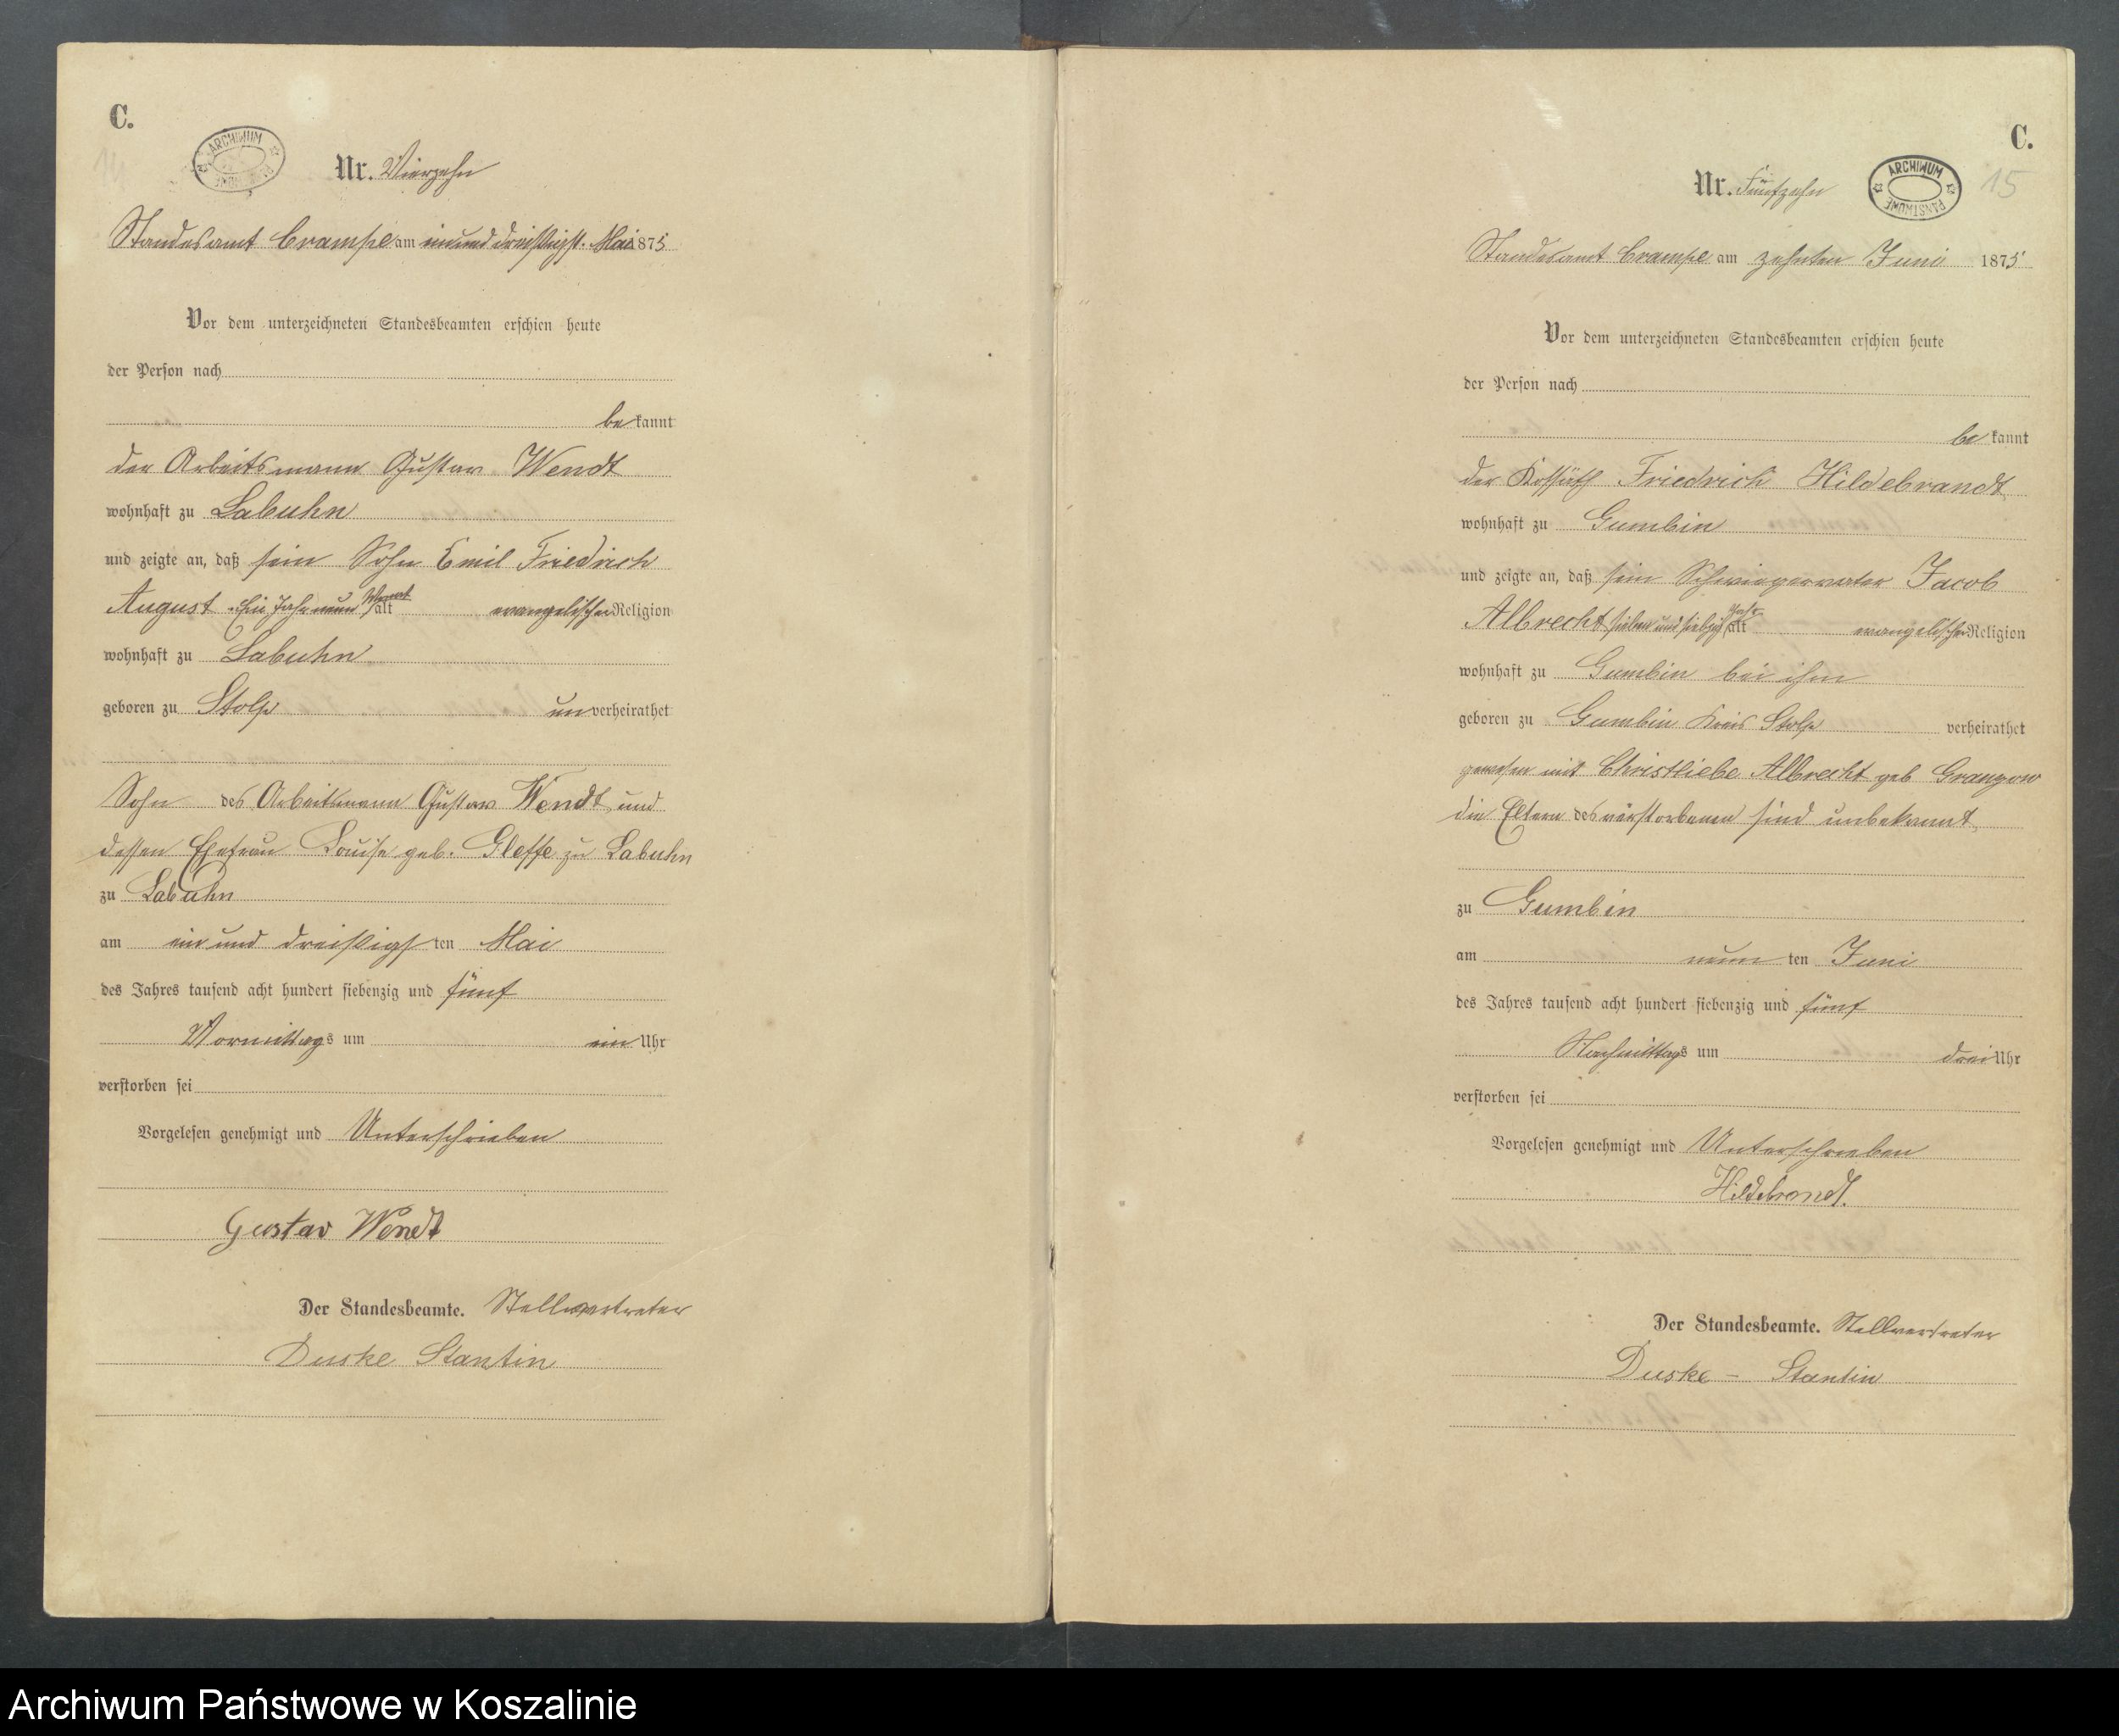 C.
14
ARCHIWUM
Nr. Vierzehn
Standesamt Crampe am einund dreißigst. Mai 1875
Vor dem unterzeichneten Standesbeamten erschien heute
der Person nach
be kannt
der Arbeitsmann Gustav Wendt
wohnhaft zu Labuhn
und zeigte an, daß sein Sohn Emil Friedrich
August Ein Jahr neun Monat alt evangelischer Religion
wohnhaft zu Labuhn
geboren zu Stolp unverheirathet
Sohn des Arbeitsmann Gustav Wendt und
dessen Ehefrau Louise geb. Gleffe zu Labuhn
zu Labuhn
am ein und dreißigsten Mai
des Jahres tausend acht hundert siebenzig und fünf
Vormittags um ein Uhr
verstorben sei
Vorgelesen genehmigt und Unterschrieben
Gustav Wendt
Der Standesbeamte. Stellvertreter
Duske Stantin
C.
Nr. Fünfzehn
ARCHIWUM PAŃSTWOWE
15
Standesamt Crampe am zehnten Juni 1875
Vor dem unterzeichneten Standesbeamten erschien heute
der Person nach
be kannt
der Kossäth Friedrich Hildebrandt
wohnhaft zu Gumbin
und zeigte an, daß sein Schwiegervater Jacob
Albrecht sieben und siebzig Jahr alt evangelischer Religion
wohnhaft zu Gumbin bei ihm
geboren zu Gumbin Kreis Stolp verheirathet
gewesen mit Christliebe Albrecht geb Granzow
die Eltern des verstorbenen sind unbekannt
zu Gumbin
am neun ten Juni
des Jahres tausend acht hundert siebenzig und fünf
Nachmittags um drei Uhr
verstorben sei
Vorgelesen genehmigt und Unterschrieben
Hildebrandt.
Der Standesbeamte. Stellvertreter
Duske - Stantin
Archiwum Państwowe w Koszalinie